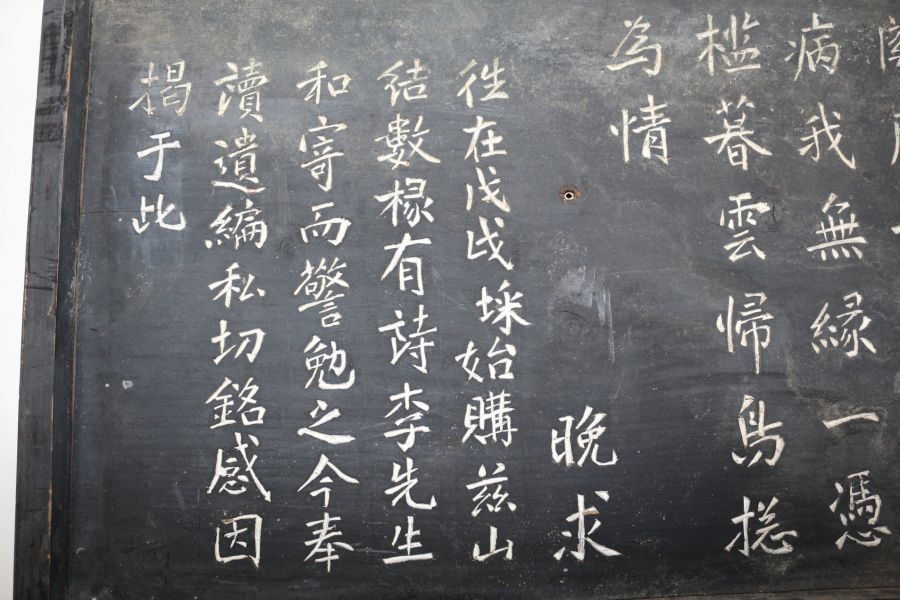 病我無緣一憑
檻暮雲帰鳥捴
為情
晚求
徃在戊戌埰始購兹山
結數椽有詩李先生
和寄而警勉之今奉
讀遺編私切銘感因
揭于此